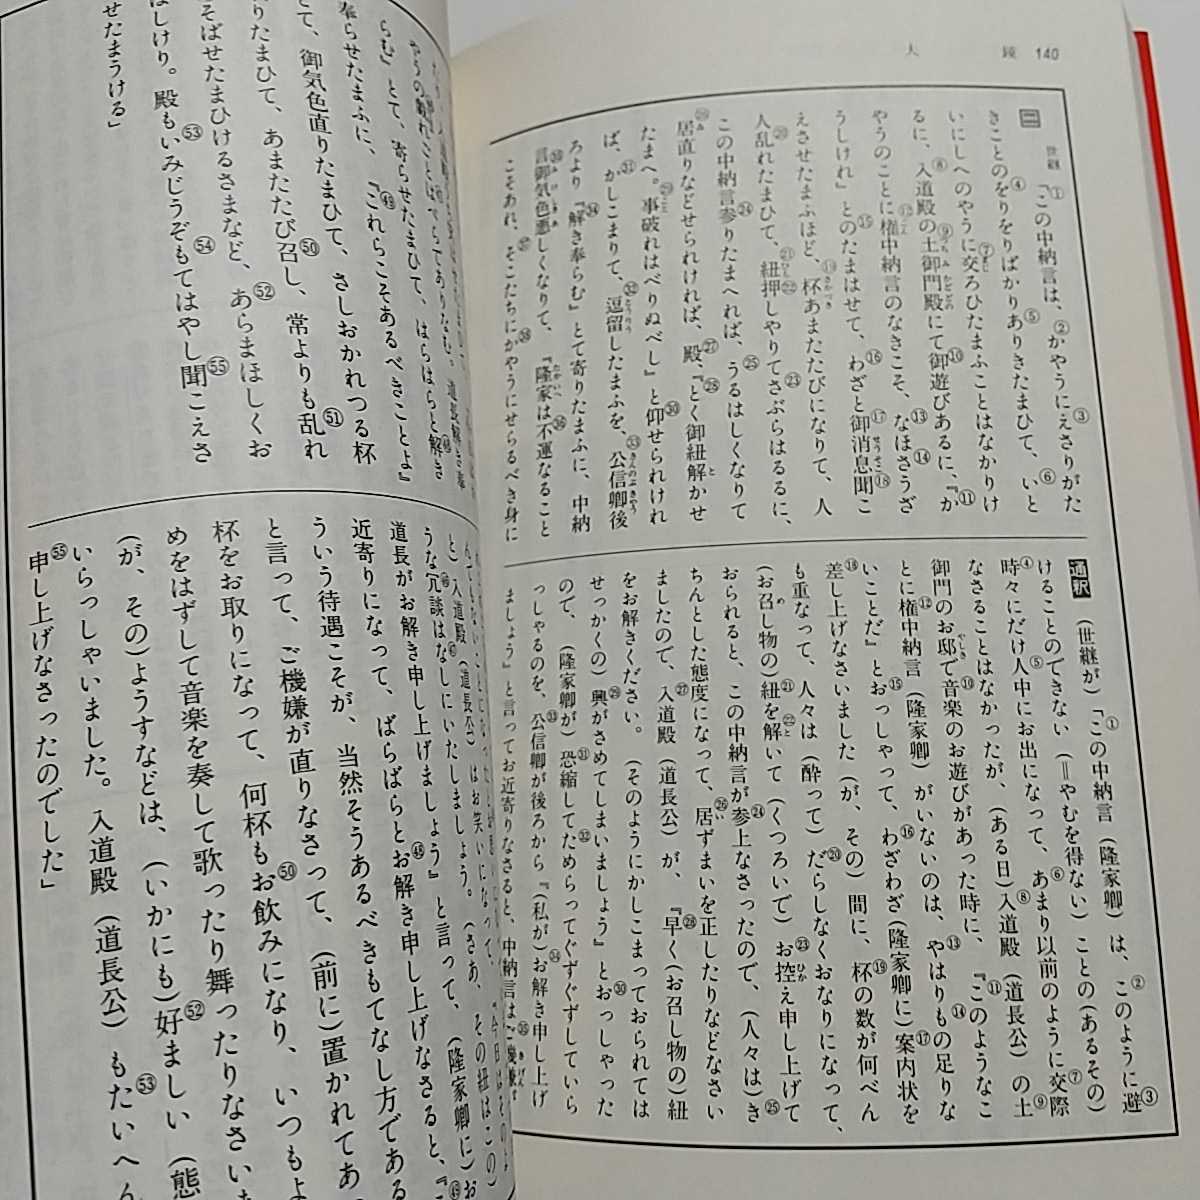 大鏡 140
二 世継「①この中納言は、②かやうに③えさりがた
きことの④をりをりばかり⑤ありきたまひて、⑥いと
いにしへのやうに⑦交ろひたまふことはなかりけ
るに、⑧入道殿の⑨土御門殿にて⑩御遊びあるに、『⑪か
やうのことに⑫権中納言のなきこそ、⑬なほ⑭さうざ
うしけれ』と⑮のたまはせて、⑯わざと⑰御消息⑱聞こ
えさせたまふほど、⑲杯あまたたびになりて、人
人⑳乱れたまひて、㉑紐押しやりて㉓さぶらはるるに、
この中納言㉔参りたまへれば、㉕うるはしくなりて
㉖居直りなどせられければ、殿㉗『㉘とく御紐解かせ
たまへ。㉙事破れはべりぬべし』と㉚仰せられけれ
ば、㉛かしこまりて、㉜逗留したまふを、㉝公信卿後
ろより『㉞解き奉らむ』とて寄りたまふに、中納
言御気色悪しくなりて、『隆家は㊱不運なること
こそあれ、㊲そこたちに㊳かやうにせらるべき身に
通釈 (世継が)「①この中納言(隆家卿)は、②このように③避
けることのできない(＝やむを得ない)ことの(あるその)
④時々にだけ⑤人中にお出になって、⑥あまり以前のように⑦交際
なさることはなかったが、(ある日)⑧入道殿(道長公)の⑨土
御門のお邸で⑩音楽のお遊びがあった時に、『⑪このようなこ
とに⑫権中納言(隆家卿)がいないのは、⑬やはり⑭もの足りな
いことだ』と⑮おっしゃって、⑯わざわざ(隆家卿に)⑰案内状を
⑱差し上げなさいました(が、その)間に、⑲杯の数が何べん
も重なって、人々は(酔って)⑳だらしなくおなりになって、
(お召し物の)㉑紐を㉒解いて(くつろいで)㉓お控え申し上げて
おられると、この中納言が㉔参上なさったので、(人々は)㉕き
ちんとした態度になって、㉖居ずまいを正したりなどなさい
ましたので、㉗入道殿(道長公)が、『㉘早く(お召し物の)紐
をお解きください。(そのようにかしこまっておられては
せっかくの)㉙興がさめてしまいましょう』と㉚おっしゃった
ので、(隆家卿が)㉛恐縮して㉜ためらってぐずぐずしていら
っしゃるのを、㉝公信卿が後ろから『(私が)㉞お解き申し上げ
ましょう』と言ってお近寄りなさると、中納言は㉟ご機嫌が
らむ』とて、寄らせたまひて、はらはらと解き
奉らせたまふに、『㊾これらこそあるべきことよ』
とて、御気色直りたまひて、さしおかれつる杯
りたまひて、あまたたび㊿召し、常よりも㉑乱れ
そばせたまひけるさまなど、㊾あらまほしくお
はしけり。殿も㊾いみじうぞ㊾もてはやし聞こえさ
せたまうける」
と)入道殿(道長公)はお笑いになって、
うな冗談はなしにいたしましょう。(さあ、その紐はこの)
道長がお解き申し上げましょう』と言って、(隆家卿に)お
近寄りになって、ばらばらとお解き申し上げなさると、『
ういう待遇こそが、当然そうあるべきもてなし方である
と言って、ご機嫌が直りなさって、(前に)置かれてあ
杯をお取りになって、何杯もお飲みになり、いつもよ
めをはずして音楽を奏して歌ったり舞ったりなさいま
(が、その)ようすなどは、(いかにも)好ましい(態
いらっしゃいました。入道殿(道長公)もたいへん
申し上げなさったのでした」